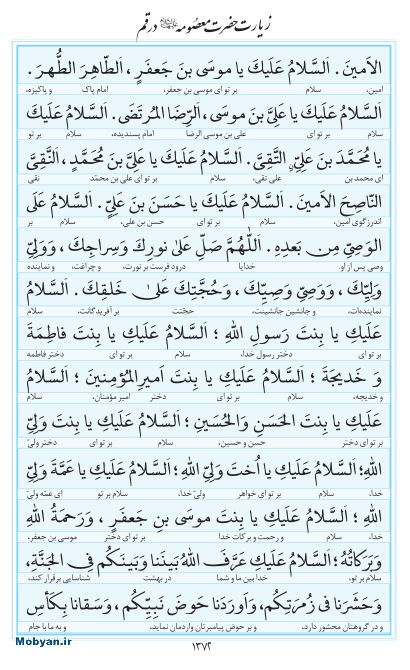 زیارت حضرت معصومه علیهاالسلام در قم
الاَمینَ . اَلسَّلامُ عَلَیكَ یا موسَی بنَ جَعفَرٍ ، اَلطّاهِرَ الطُّهرَ .
امین، سلام بر تو ای موسی بن جعفر، امام پاک و پاکیزه،
اَلسَّلامُ عَلَیكَ یا عَلِیَّ بنَ موسَی ، اَلرِّضَا المُرتَضَی . اَلسَّلامُ عَلَیكَ
سلام بر تو ای علی بن موسی الرضا امام پسندیده، سلام بر تو
یا مُحَمَّدَ بنَ عَلِیٍّ التَّقِیَّ . اَلسَّلامُ عَلَیكَ یا عَلِیَّ بنَ مُحَمَّدٍ ، النَّقِیَّ
ای محمد بن علی تقی، سلام بر تو ای علی بن محمّد نقی
النّاصِحَ الاَمینَ . اَلسَّلامُ عَلَیكَ یا حَسَنَ بنَ عَلِیٍّ . اَلسَّلامُ عَلَی
اندرزگوی امین، سلام بر تو ای حسن بن علی، سلام بر
الوَصِیِّ مِن بَعدِهِ . اَللّٰهُمَّ صَلِّ عَلیٰ نورِكَ وَسِراجِكَ ، وَوَلِیِّ
وصی پس از او. خدایا درود فرست بر نورت، و چراغت، و نماینده
وَلِیِّكَ ، وَوَصِیِّ وَصِیِّكَ ، وَحُجَّتِكَ عَلیٰ خَلقِكَ . اَلسَّلامُ
نماینده‌ات، و جانشین جانشینت، حجّتت بر آفریدگانت، سلام
عَلَیكِ یا بِنتَ رَسولِ اللهِ ؛ اَلسَّلامُ عَلَیكِ یا بِنتَ فاطِمَةَ
بر تو ای دختر رسول خدا، سلام بر تو ای دختر فاطمه
وَ خَدیجَةَ ؛ اَلسَّلامُ عَلَیكِ یا بِنتَ اَمیرِ المُؤمِنینَ ؛ اَلسَّلامُ
و خدیجه، سلام بر تو ای دختر امیر مؤمنان، سلام
عَلَیكِ یا بِنتَ الحَسَنِ وَالحُسَینِ ؛ اَلسَّلامُ عَلَیكِ یا بِنتَ وَلِیِّ
بر تو ای دختر حسن و حسین، سلام بر تو ای دختر ولیّ
اللهِ ؛ اَلسَّلامُ عَلَیكِ یا اُختَ وَلِیِّ اللهِ ؛ اَلسَّلامُ عَلَیكِ یا عَمَّةَ وَلِیِّ
خدا، سلام بر تو ای خواهر ولیّ خدا، سلام بر تو ای عمّه ولیّ
اللهِ ؛ اَلسَّلامُ عَلَیكِ یا بِنتَ موسَی بنِ جَعفَرٍ ، وَرَحمَةُ اللهِ
خدا، سلام بر تو ای دختر موسی بن جعفر، و رحمت و برکات خدا
وَبَرَکاتُهُ ؛ اَلسَّلامُ عَلَیكِ عَرَّفَ اللهُ بَینَنا وَبَینَکُم فِی الجَنَّةِ ،
سلام بر تو، خدا بین ما و شما در بهشت شناسایی برقرار کند،
وَحَشَرَنا فی زُمرَتِکُم ، وَاَورَدَنا حَوضَ نَبِیِّکُم ، وَسَقانا بِکَأسِ
و در گروهتان محشور دارد، و بر حوض پیامبرتان واردمان نماید، و به ما با جام
۱۳۷۲
Mobyan.ir